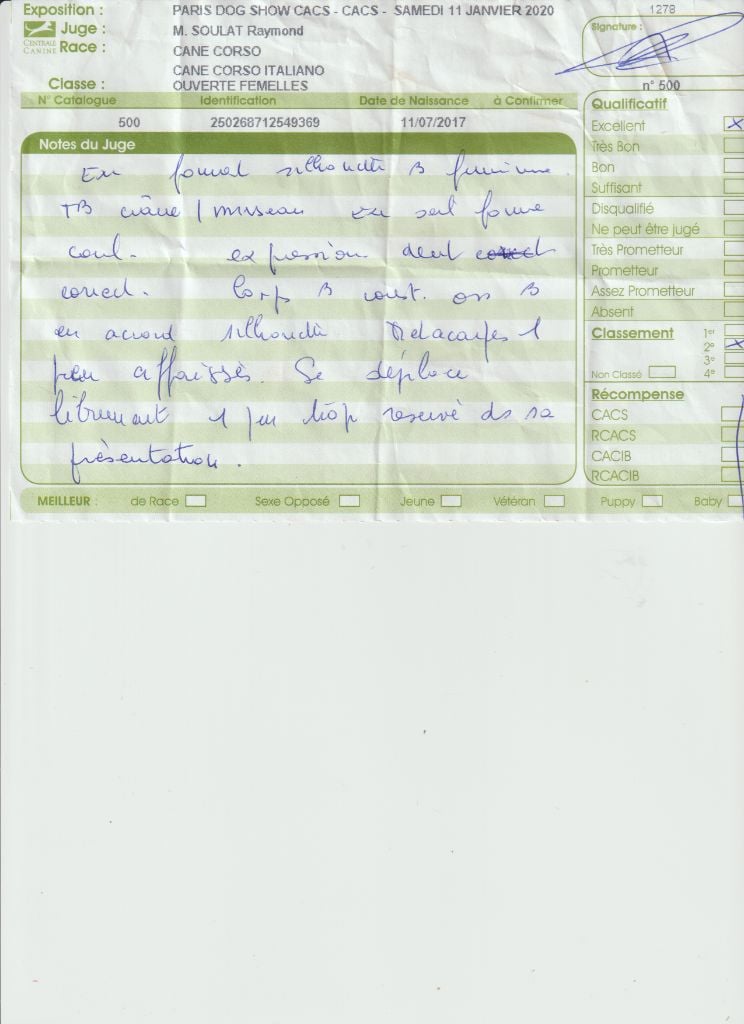 Exposition : PARIS DOG SHOW CACS - CACS - SAMEDI 11 JANVIER 2020
CENTRALE CANINE
Juge : M. SOULAT Raymond
Race : CANE CORSO
CANE CORSO ITALIANO
Classe : OUVERTE FEMELLES
N° Catalogue Identification Date de Naissance à Confirmer
500 250268712549369 11/07/2017
Notes du Juge
Exc format silhouette B féminine.
TB crâne / museau Exc oeil forme
coul. expression dent
correct. Corps B const. oss B
en accord silhouette Métacarpes 1
peu affaissés. Se déplace
librement 1 peu trop reservé ds sa
présentation.
MEILLEUR : de Race Sexe Opposé Jeune Vétéran Puppy Baby
1278
Signature :
n° 500
Qualificatif
Excellent
Très Bon
Bon
Suffisant
Disqualifié
Ne peut être jugé
Très Prometteur
Prometteur
Assez Prometteur
Absent
Classement 1er
2e
3e
Non Classé 4e
Récompense
CACS
RCACS
CACIB
RCACIB